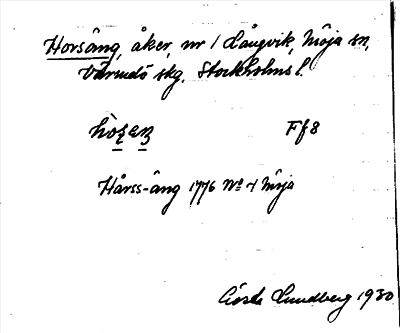 Horsäng, åker, nr 1 Långvik, Möja sn,
Värmdö skg. Stockholms l.
Ff8
Hårss-äng 1776 No 4 Möja
Lundberg 1930